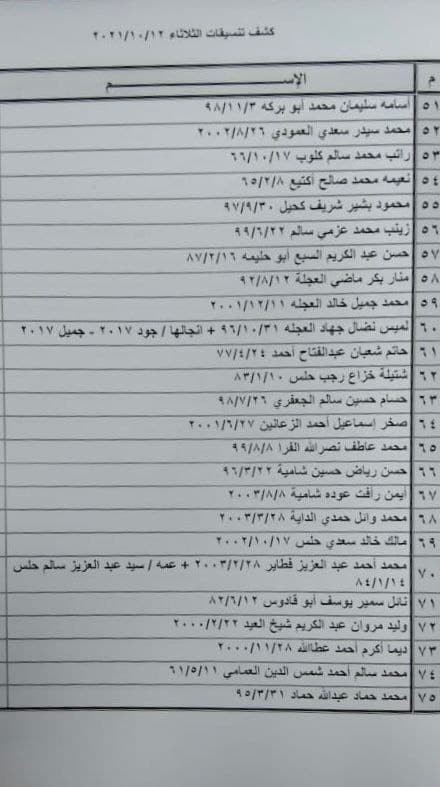 كشف تنسيقات الثلاثاء ٢٠٢١/١٠/١٢
م الإســـــم
٥١ أسامه سليمان محمد أبو بركه ٩٨/١١/٣
٥٢ محمد سيدر سعدي العمودي ٢٠٠٢/٨/٢٦
٥٣ راتب محمد سالم كلوب ٦٦/١٠/١٧
٥٤ نعيمه محمد صالح أكتيع ٦٥/٢/٨
٥٥ محمود بشير شريف كحيل ٩٧/٩/٣٠
٥٦ زينب محمد عزمي سالم ٩٩/٦/٢٢
٥٧ حسن عبد الكريم السبع أبو حليمه ٨٧/٢/١٦
٥٨ منار بكر ماضي العجلة ٩٢/٨/١٢
٥٩ محمد جميل خالد العجله ٢٠٠١/١٢/١١
٦٠ لميس نضال جهاد العجله ٩٦/١٠/٣١ + انجالها / جود ٢٠١٧ - جميل ٢٠١٧
٦١ حاتم شعبان عبدالفتاح أحمد ٧٧/٤/٢٤
٦٢ شتيلة خزاع رجب حلس ٨٣/١/١٠
٦٣ حسام حسين سالم الجعفري ٩٨/٧/٢٦
٦٤ صخر إسماعيل أحمد الزعالين ٢٠٠١/٦/٢٧
٦٥ محمد عاطف نصرالله الفرا ٩٩/٨/٨
٦٦ حسن رياض حسين شامية ٩٦/٣/٢٢
٦٧ أيمن رأفت عوده شامية ٢٠٠٣/٨/٨
٦٨ محمد وائل حمدي الداية ٢٠٠٣/٣/٢٨
٦٩ مالك خالد سعدي حلس ٢٠٠٢/١٠/١٧
٧٠ محمد أحمد عبد العزيز فطاير ٢٠٠٣/٢/٢٨ + عمه / سيد عبد العزيز سالم حلس
٨٤/١/١٤
٧١ نائل سمير يوسف أبو قادوس ٨٢/٦/١٢
٧٢ وليد مروان عبد الكريم شيخ العيد ٢٠٠٠/٢/٢٢
٧٣ ديما أكرم أحمد عطاالله ٢٠٠٠/١١/٢٨
٧٤ محمد سالم أحمد شمس الدين العمامي ٦١/٥/١١
٧٥ محمد حماد عبدالله حماد ٩٥/٣/٣١